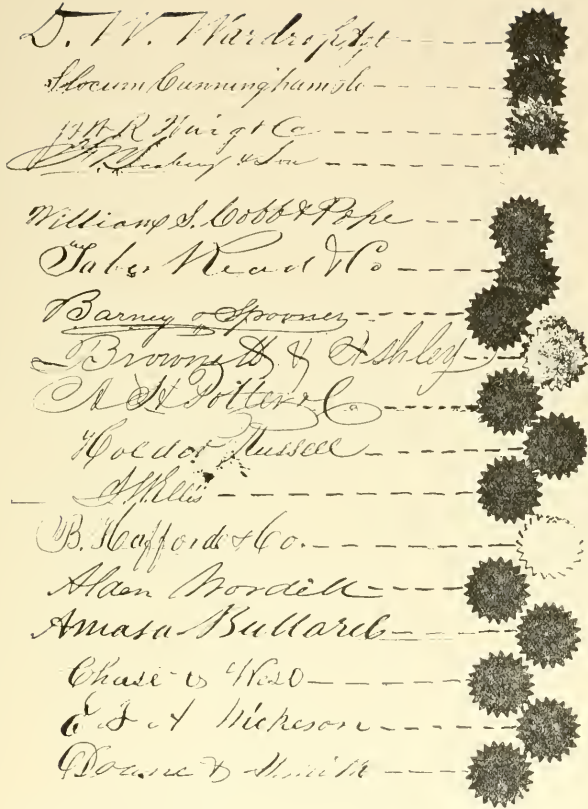 D. W. Wardrop, Agt
Slocum Cunningham & Co
H & R Wing & Co
& Son
William S. Cobb & Pope
Taber Read & Co
Barney & Spooner
Brownell & Ashley
A H Potter & Co
Holder Russell
Ellis
B. Hafford & Co.
Alden Wordell
Amasa Bullard
Chase &
E & A Nickerson
Doane & Smith